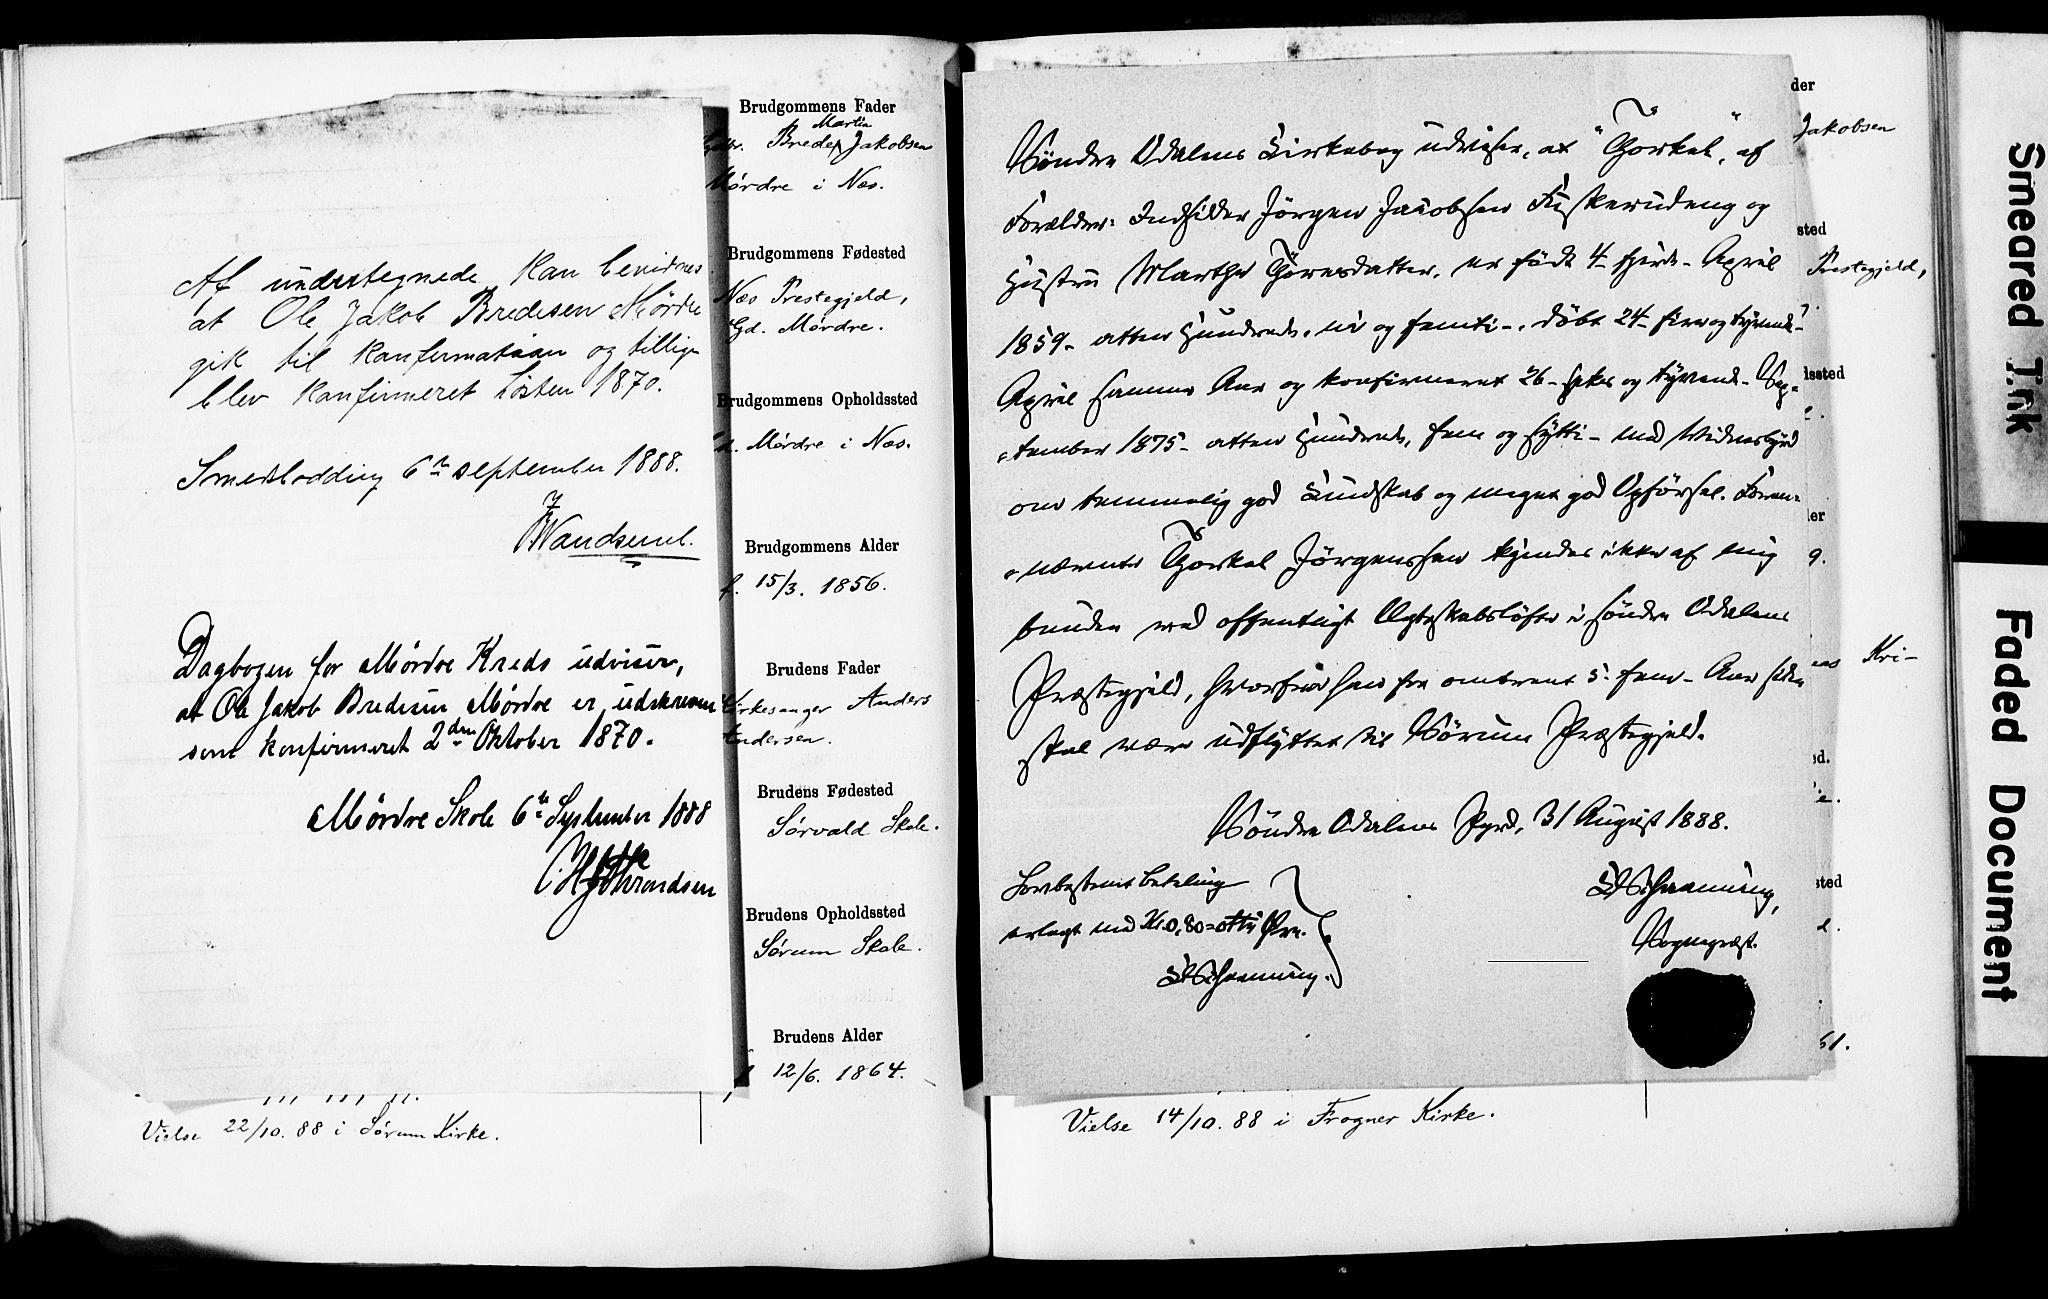 Af undertegnede kan bevidnes
at Ole Jakob Bredesen Mørdre
gik til Konfirmation og tillige
blev konfirmeret høsten 1870.
6te september 1888.
Dagbogen for Mørdre Kreds udviser,
at Ole Jakob Bredesen Mørdre er udskreven
som konfirmeret 2den Oktober 1870.
Mørdre Skole 6te September 1888
Vielse 22/10. 88 i Sørum Kirke.
Brudgommens Fader
Martin
Brede Jakobsen
Mørdre i Næs.
Brudgommens Fødested
Næs Prestegjeld,
Gd. Mørdre.
Brudgommens Opholdssted
Mørdre i Næs.
Brudgommens Alder
f. 15/3. 1856.
Brudens Fader
Kirkesanger Anders
Andersen.
Brudens Fødested
Sørvald Skole.
Brudens Opholdssted
Sørum Skole.
Brudens Alder
12/6. 1864.
Søndre Odalens Kirkebog udviser, at "Thorkel", af
Forældre: Indsidder Jørgen Jacobsen Fiskerudeng og
Hustru Marthe Thoresdatter, er født 4 - fjerde - April
1859 - atten Hundrede, ni og femti -, døbt 24 - fire og tyvende -
April samme Aar og konfirmeret 26 - seks og tyvende - Sep-
-tember 1875 - atten Hundrede, fem og sytti - med Vidnesbyrd
om temmelig god Kundskab og meget god Opførsel. Foran-
-nævnte Thorkel Jørgenssen kjendes ikke af mig
bunden ved offentligt Ægteskabsløfte i Søndre Odalens
Præstegjeld, hvorfra han for omtrent 5 - fem - Aar siden
skal være udflyttet til Sørum Præstegjeld.
Søndre Odalens Pgrd, 31 August 1888.
Lovbestemt betaling
erlagt med Kr. 0,80 = otti Øre.
Sogneprest.
der
Jakobsen
sted
Prestegjeld,
dssted
der
9.
Kri-
ed.
sted
61.
Vielse 14/10. 88 i Frogner Kirke.
Smeared Ink
Faded Document